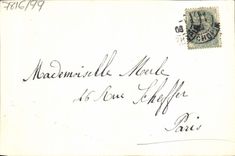 7816/99
Mademoiselle Merle
16 Rue Scheffer
Paris